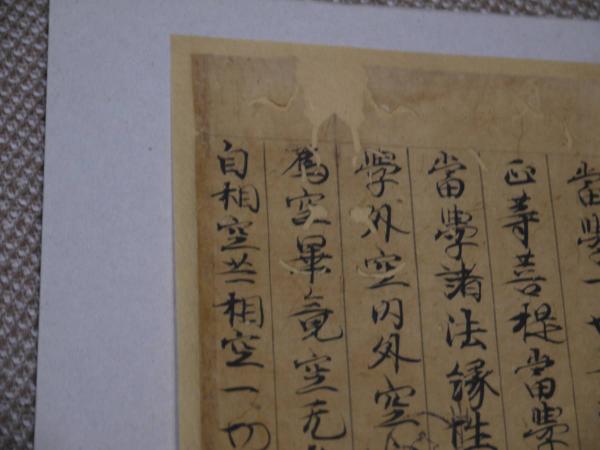 當學一切
正等菩提當學
當學諸法緣性
學外空內外空
為空畢竟空无
自相空共相空一切